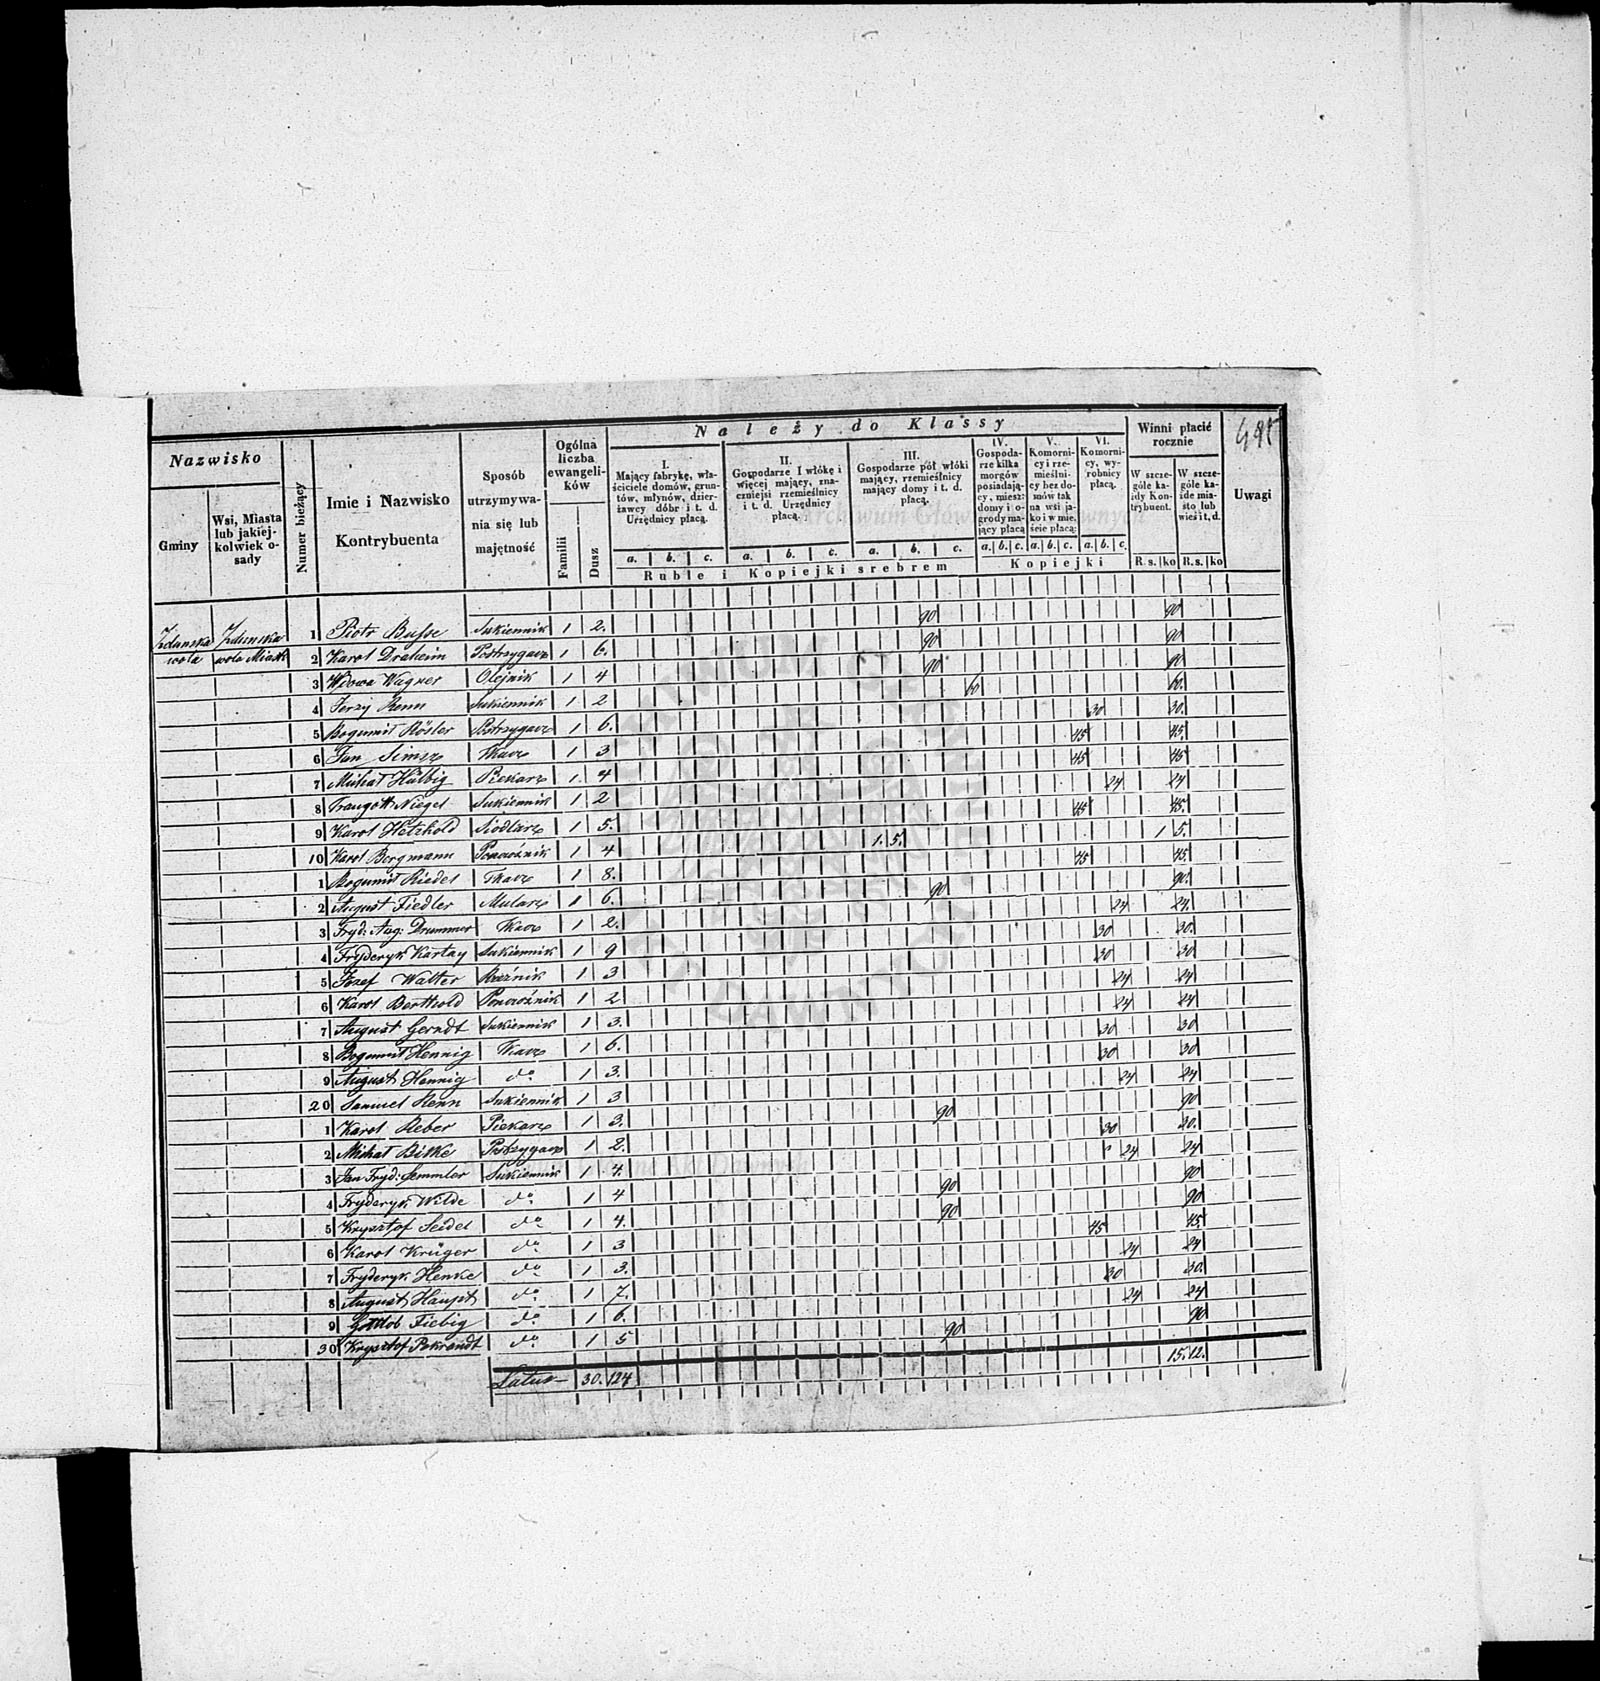 485
Nazwisko
Gminy
Wsi, Miasta lub jakiej-kolwiek o-sady
Numer bieżący
Imie i Nazwisko Kontrybuenta
Sposób utrzymywa-nia się lub majętność
Ogólna liczba ewangeli-ków
Familii
Dusz
Należy do Klassy
I. Mający fabrykę, wła-ściciele domów, grun-tów, młynów, dzier-żawcy dóbr i t. d. Urzędnicy płacą.
II. Gospodarze 1 włókę i więcej mający, zna-czniejsi rzemieślnicy i t. d. Urzędnicy płacą.
III. Gospodarze pół włóki mający, rzemieślnicy mający domy i t. d. płacą.
IV. Gospoda-rze kilka morgów posiadają-cy, mieszk: domy i o-grody ma-jący płacą
V. Komorni-cy i rze-mieślni-cy bez do-mów tak na wsi ja-ko i w mie-ście płacą:
VI. Komorni-cy, wy-robnicy płacą.
a. b. c. a. b. c. a. b. c. a. b. c. a. b. c. a. b. c.
Ruble i Kopiejki srebrem
Kopiejki
Winni płacić rocznie
W szcze-góle ka-żdy Kon-trybuent.
W szcze-góle ka-żde mia-sto lub wieś i t. d.
R. s. ko R. s. ko
Uwagi
Zdunska wola Zdunska wola Miasto
1 Piotr Busse Sukiennik 1 2. 90 90
2 Karol Draheim Postrzygacz 1 6. 90 90
3 Wdowa Wagner Olejnik 1 4 90 90
4 Jerzy Renn Sukiennik 1 2 60 60.
5 Bogumił Rösler Postrzygacz 1 6. 30 30.
6 Jan Tkacz 1 3 45 45.
7 Michał Hälbig Piekarz 1. 4 45 45
8 Traugott Niegel Sukiennik 1 2 24 24
9 Karol Hetzhold Siodlarz 1 5. 45 45.
10 Karol Bergmann Powroźnik 1 4 1. 5. 1 5.
1 Bogumił Riedel Tkacz 1 8. 45 45.
2 August Fiedler Mularz 1 6. 90 90.
3 Fryd: Aug: Drummer Tkacz 1 2. 24 24.
4 Fryderyk Kartay Sukiennik 1 9 30 30.
5 Jozef Walter Rzeźnik 1 3 30 30
6 Karol Berthold Powroźnik 1 2 24 24
7 August Gerndt Sukiennik 1 3. 24 24
8 Bogumił Hennig Tkacz 1 6. 30 30
9 August Hennig do 1 3. 30 30
20 Samuel Renn Sukiennik 1 3 24 24
1 Karol Reber Piekarz 1 3. 90 90
2 Michał Bitke Postrzygacz 1 2. 30 30.
3 Jan Fryd: Semmler Sukiennik 1 4. 24 24
4 Fryderyk Wilde do 1 4 90 90
5 Krysztof Seidel do 1 4. 90 90
6 Karol Krüger do 1 3 45 45.
7 Fryderyk Henke do 1 3. 24 24
8 August Haupt do 1 7. 30 30.
9 Gottlob Fiebig do 1 6. 24 24
30 Krysztof Pokrandt do 1 5 90 90
Latus 30. 124 15. 12.